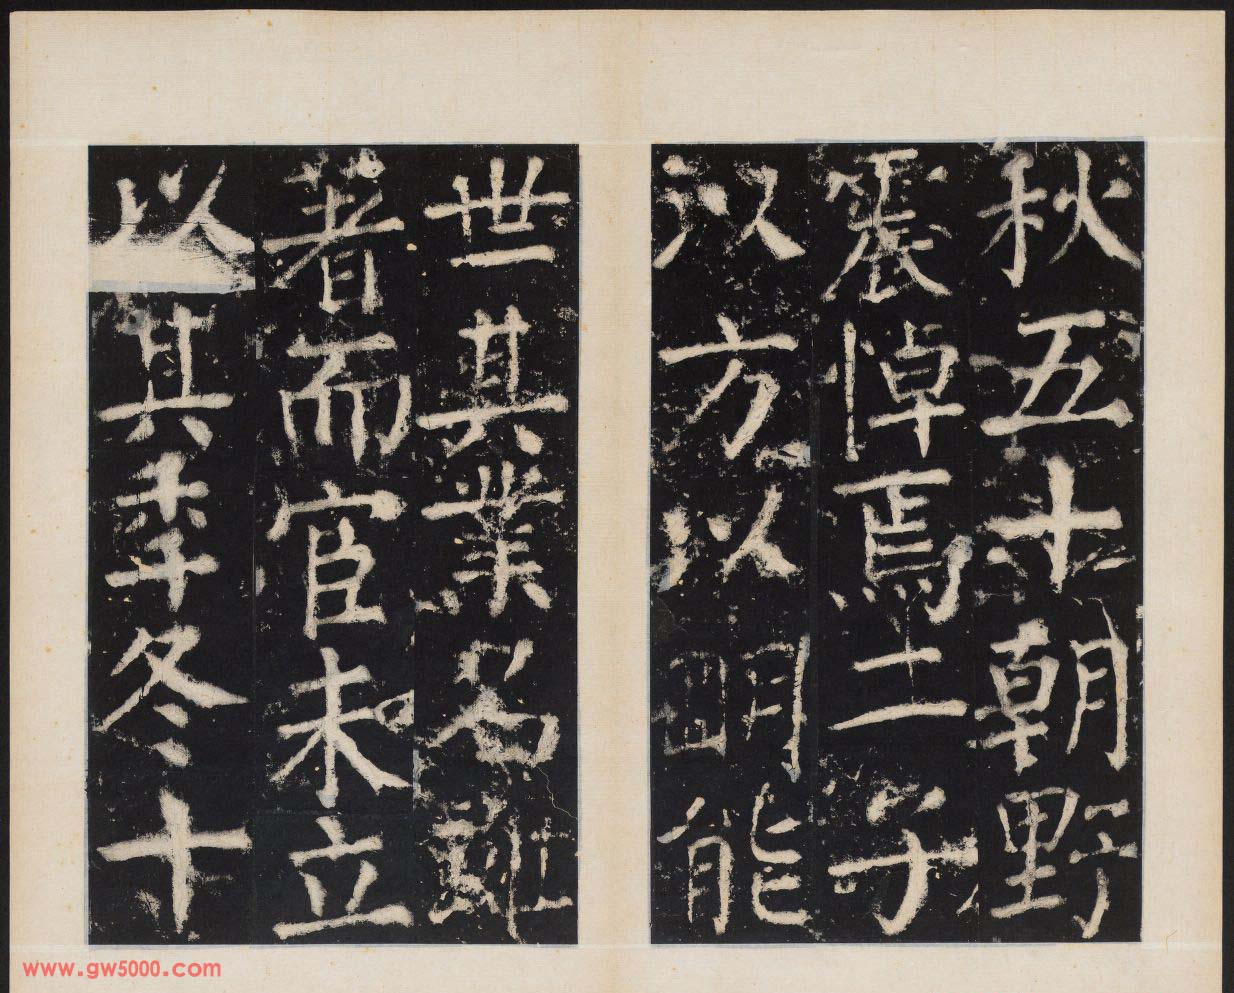 秋五十朝野
震悼焉二子
以方以明能
世其業名班
著而官未立
以其季冬十
www.gw5000.com